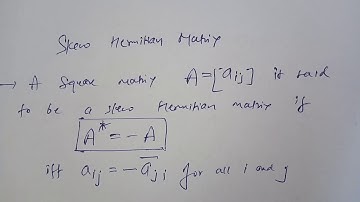 Skew Hermitian Matrix
→ A Square matrix A=[aij] is said
to be a skew Hermitian matrix if
A* = -A
iff aij = -a̅ji for all i and j